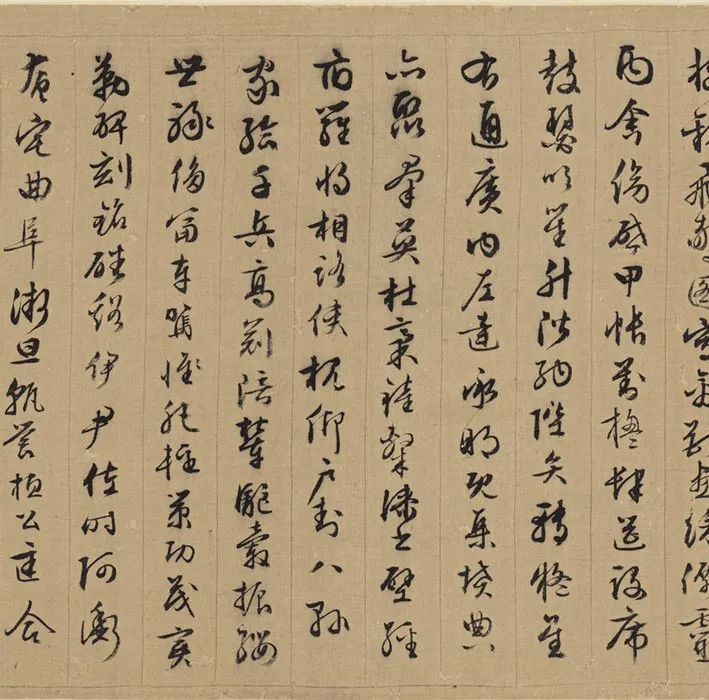 樓觀飛驚圖寫禽獸畫綵僊靈
丙舍傍啓甲帳對楹肆筵設席
鼓瑟吹笙升階納陛弁轉疑星
右通廣內左達承明既集墳典
亦聚羣英杜稾鍾隸漆書壁經
府羅將相路俠槐卿戶封八縣
家給千兵高冠陪輦驅轂振纓
世祿侈富車駕惟肥輕策功茂實
勒碑刻銘磻溪伊尹佐時阿衡
奄宅曲阜微旦孰營桓公匡合